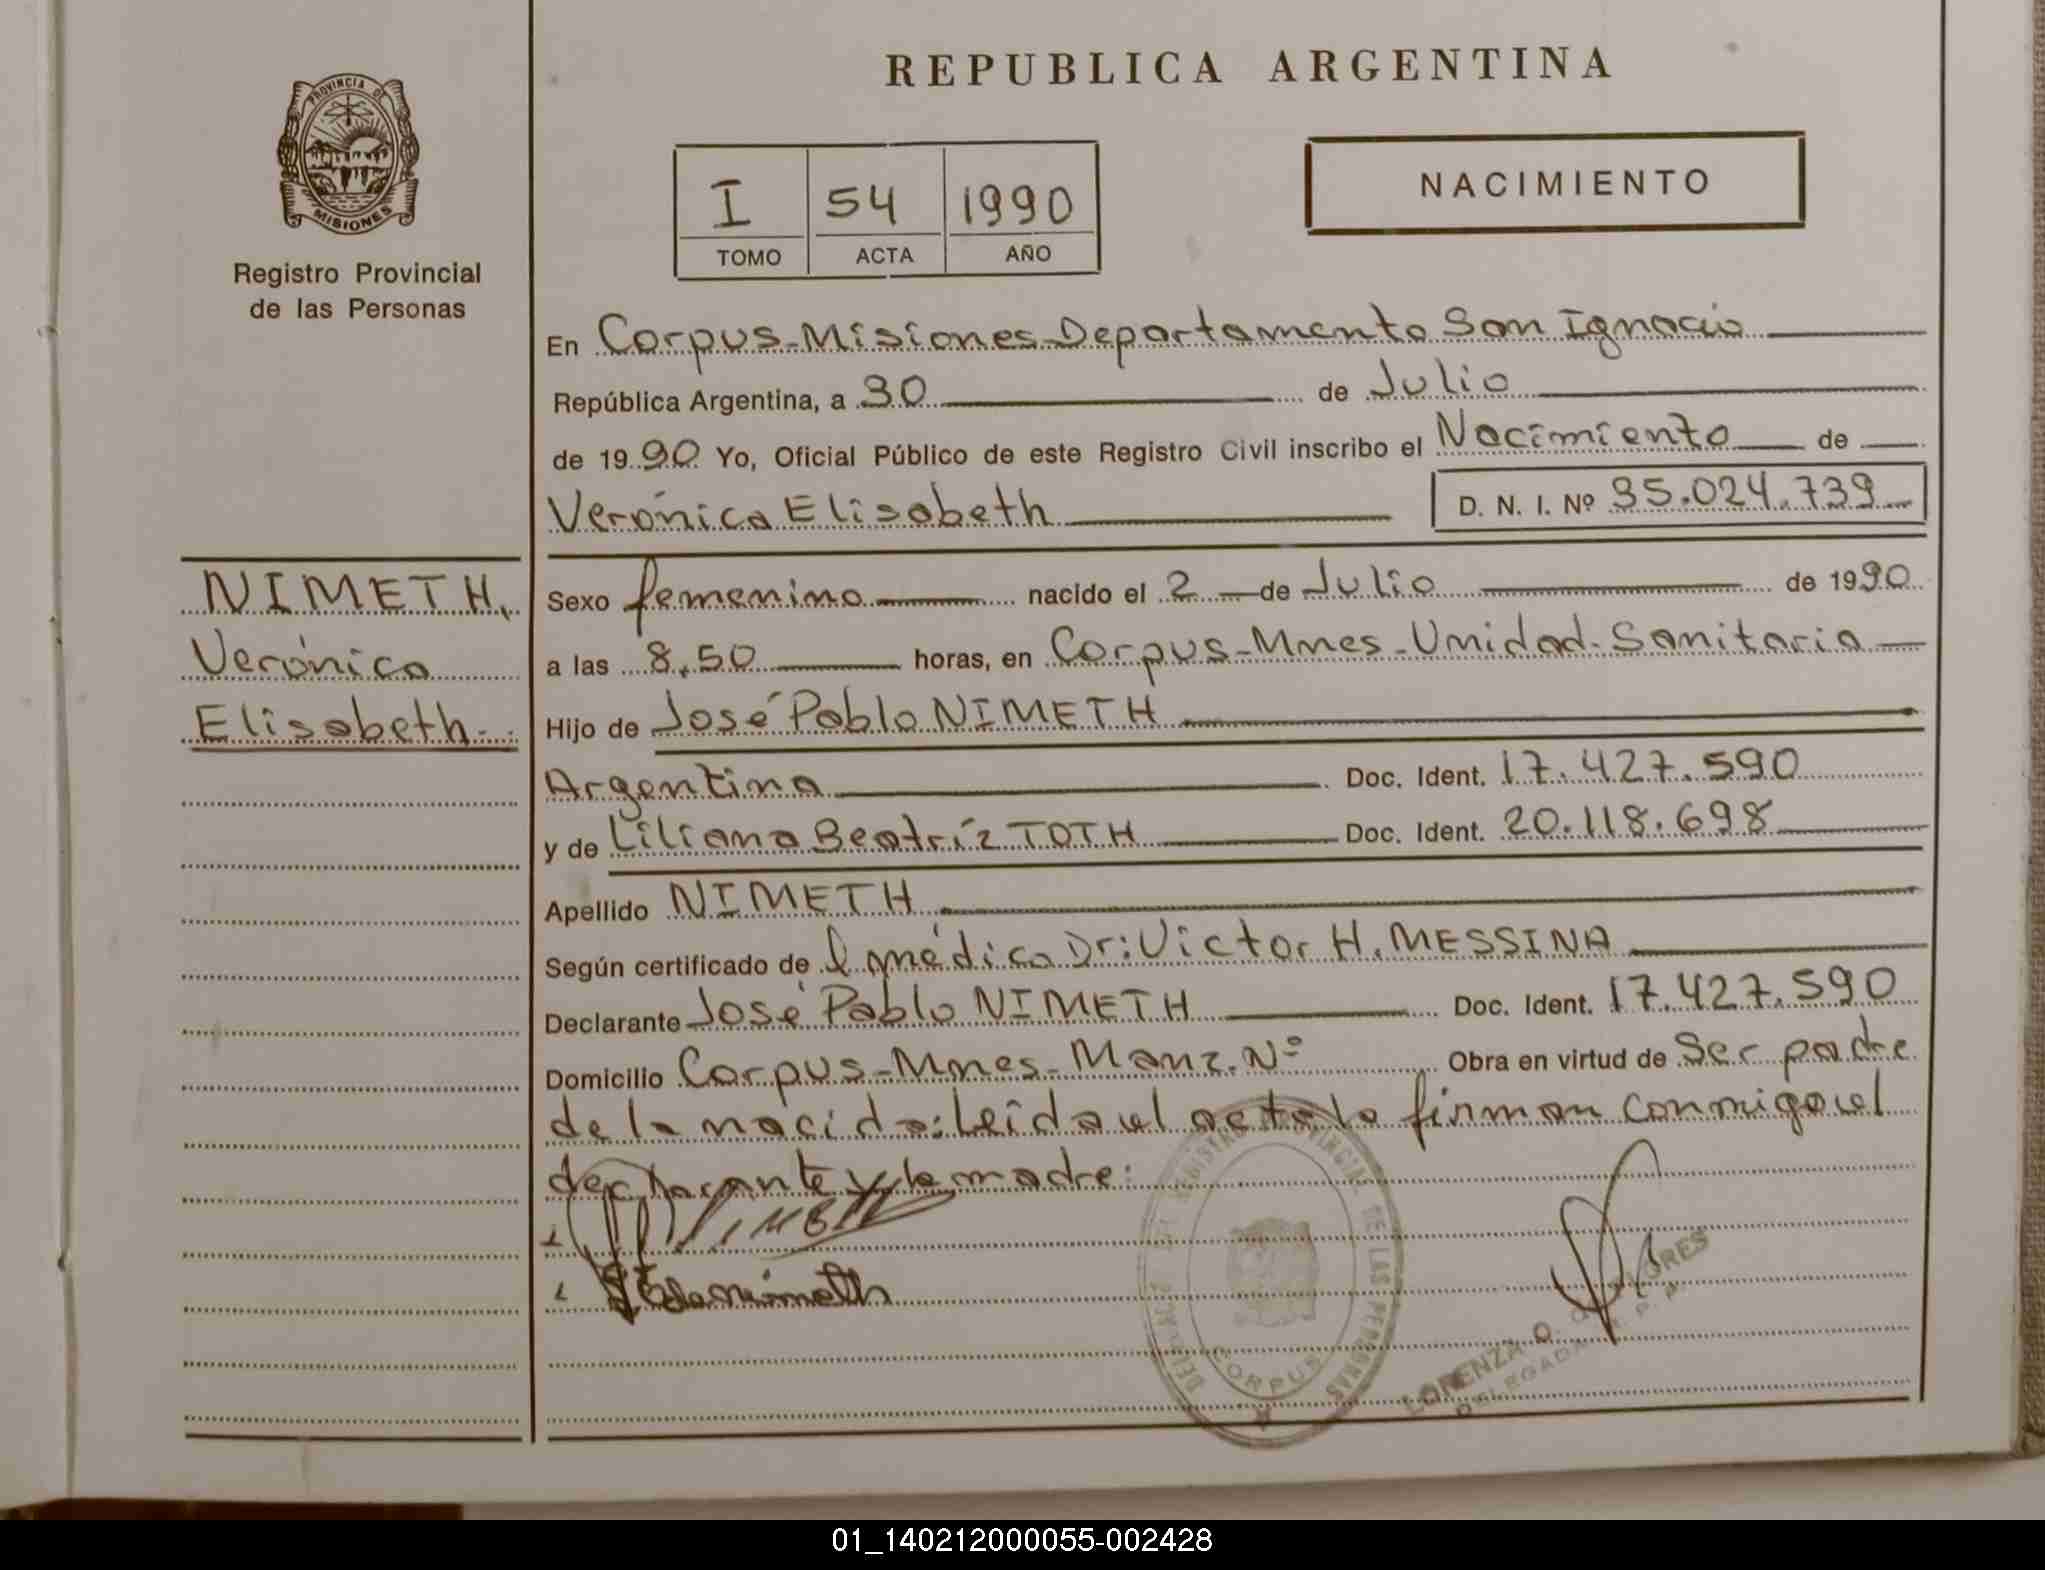 REPUBLICA ARGENTINA
PROVINCIA DE
MISIONES
Registro Provincial
de las Personas
I 54 1990
TOMO ACTA AÑO
NACIMIENTO
En Corpus-Misiones-Departamento San Ignacio
República Argentina, a 30 de Julio
de 1990 Yo, Oficial Público de este Registro Civil inscribo el Nacimiento de
Verónica Elisabeth D. N. I. Nº 35.024.739
NIMETH,
Verónica
Elisabeth-
Sexo femenino nacido el 2 de Julio de 1990
a las 8,50 horas, en Corpus-Mnes-Unidad-Sanitaria
Hijo de José Pablo NIMETH
Argentina Doc. Ident. 17.427.590
y de Liliana Beatríz TOTH Doc. Ident. 20.118.698
Apellido NIMETH
Según certificado de l médico Dr: Victor H. MESSINA
Declarante José Pablo NIMETH Doc. Ident. 17.427.590
Domicilio Corpus-Mnes-Manz.Nº Obra en virtud de Ser padre
de la nacida: Leída el acta la firman conmigo el
declarante y la madre:
REGISTRO PROVINCIAL DE LAS PERSONAS
CORPUS
LORENZA
01_140212000055-002428